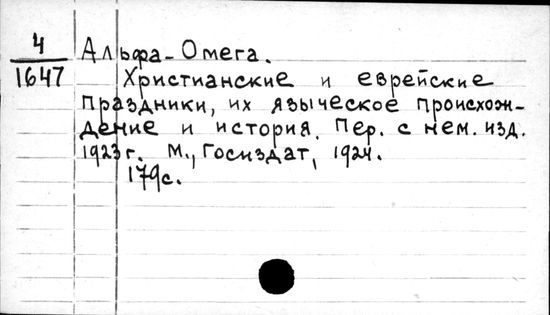 4
1647
Альфа-Омега.
Христианские и еврейские
праздники, их языческое происхож-
дение и история. Пер. с нем. изд.
1923г. М., Госиздат, 1924.
179с.